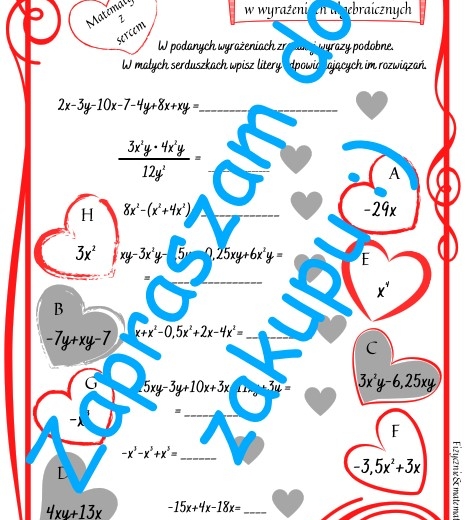 Matematyka
z
sercem
w wyrażeniach algebraicznych
W podanych wyrażeniach zredukuj wyrazy podobne.
W małych serduszkach wpisz litery odpowiadających im rozwiązań.
2x-3y-10x-7-4y+8x+xy =____________________
3x²y · 4x²y
12y² = __________
A
-29x
8x²-(x²+4x²) = __________
H
3x²
xy-3x²y- 5y 0,25xy+6x²y =
= __________
E
x⁴
B
-7y+xy-7
x+x²-0,5x²+2x-4x²= ________
C
3x²y-6,25xy
G
-x³
15xy-3y+10x+3x 11xy+3y =
= ________
F
-3,5x²+3x
-x³-x³+x³= ______
D
4xy+13x
-15x+4x-18x= ____
Zapraszam do
zakupu :)